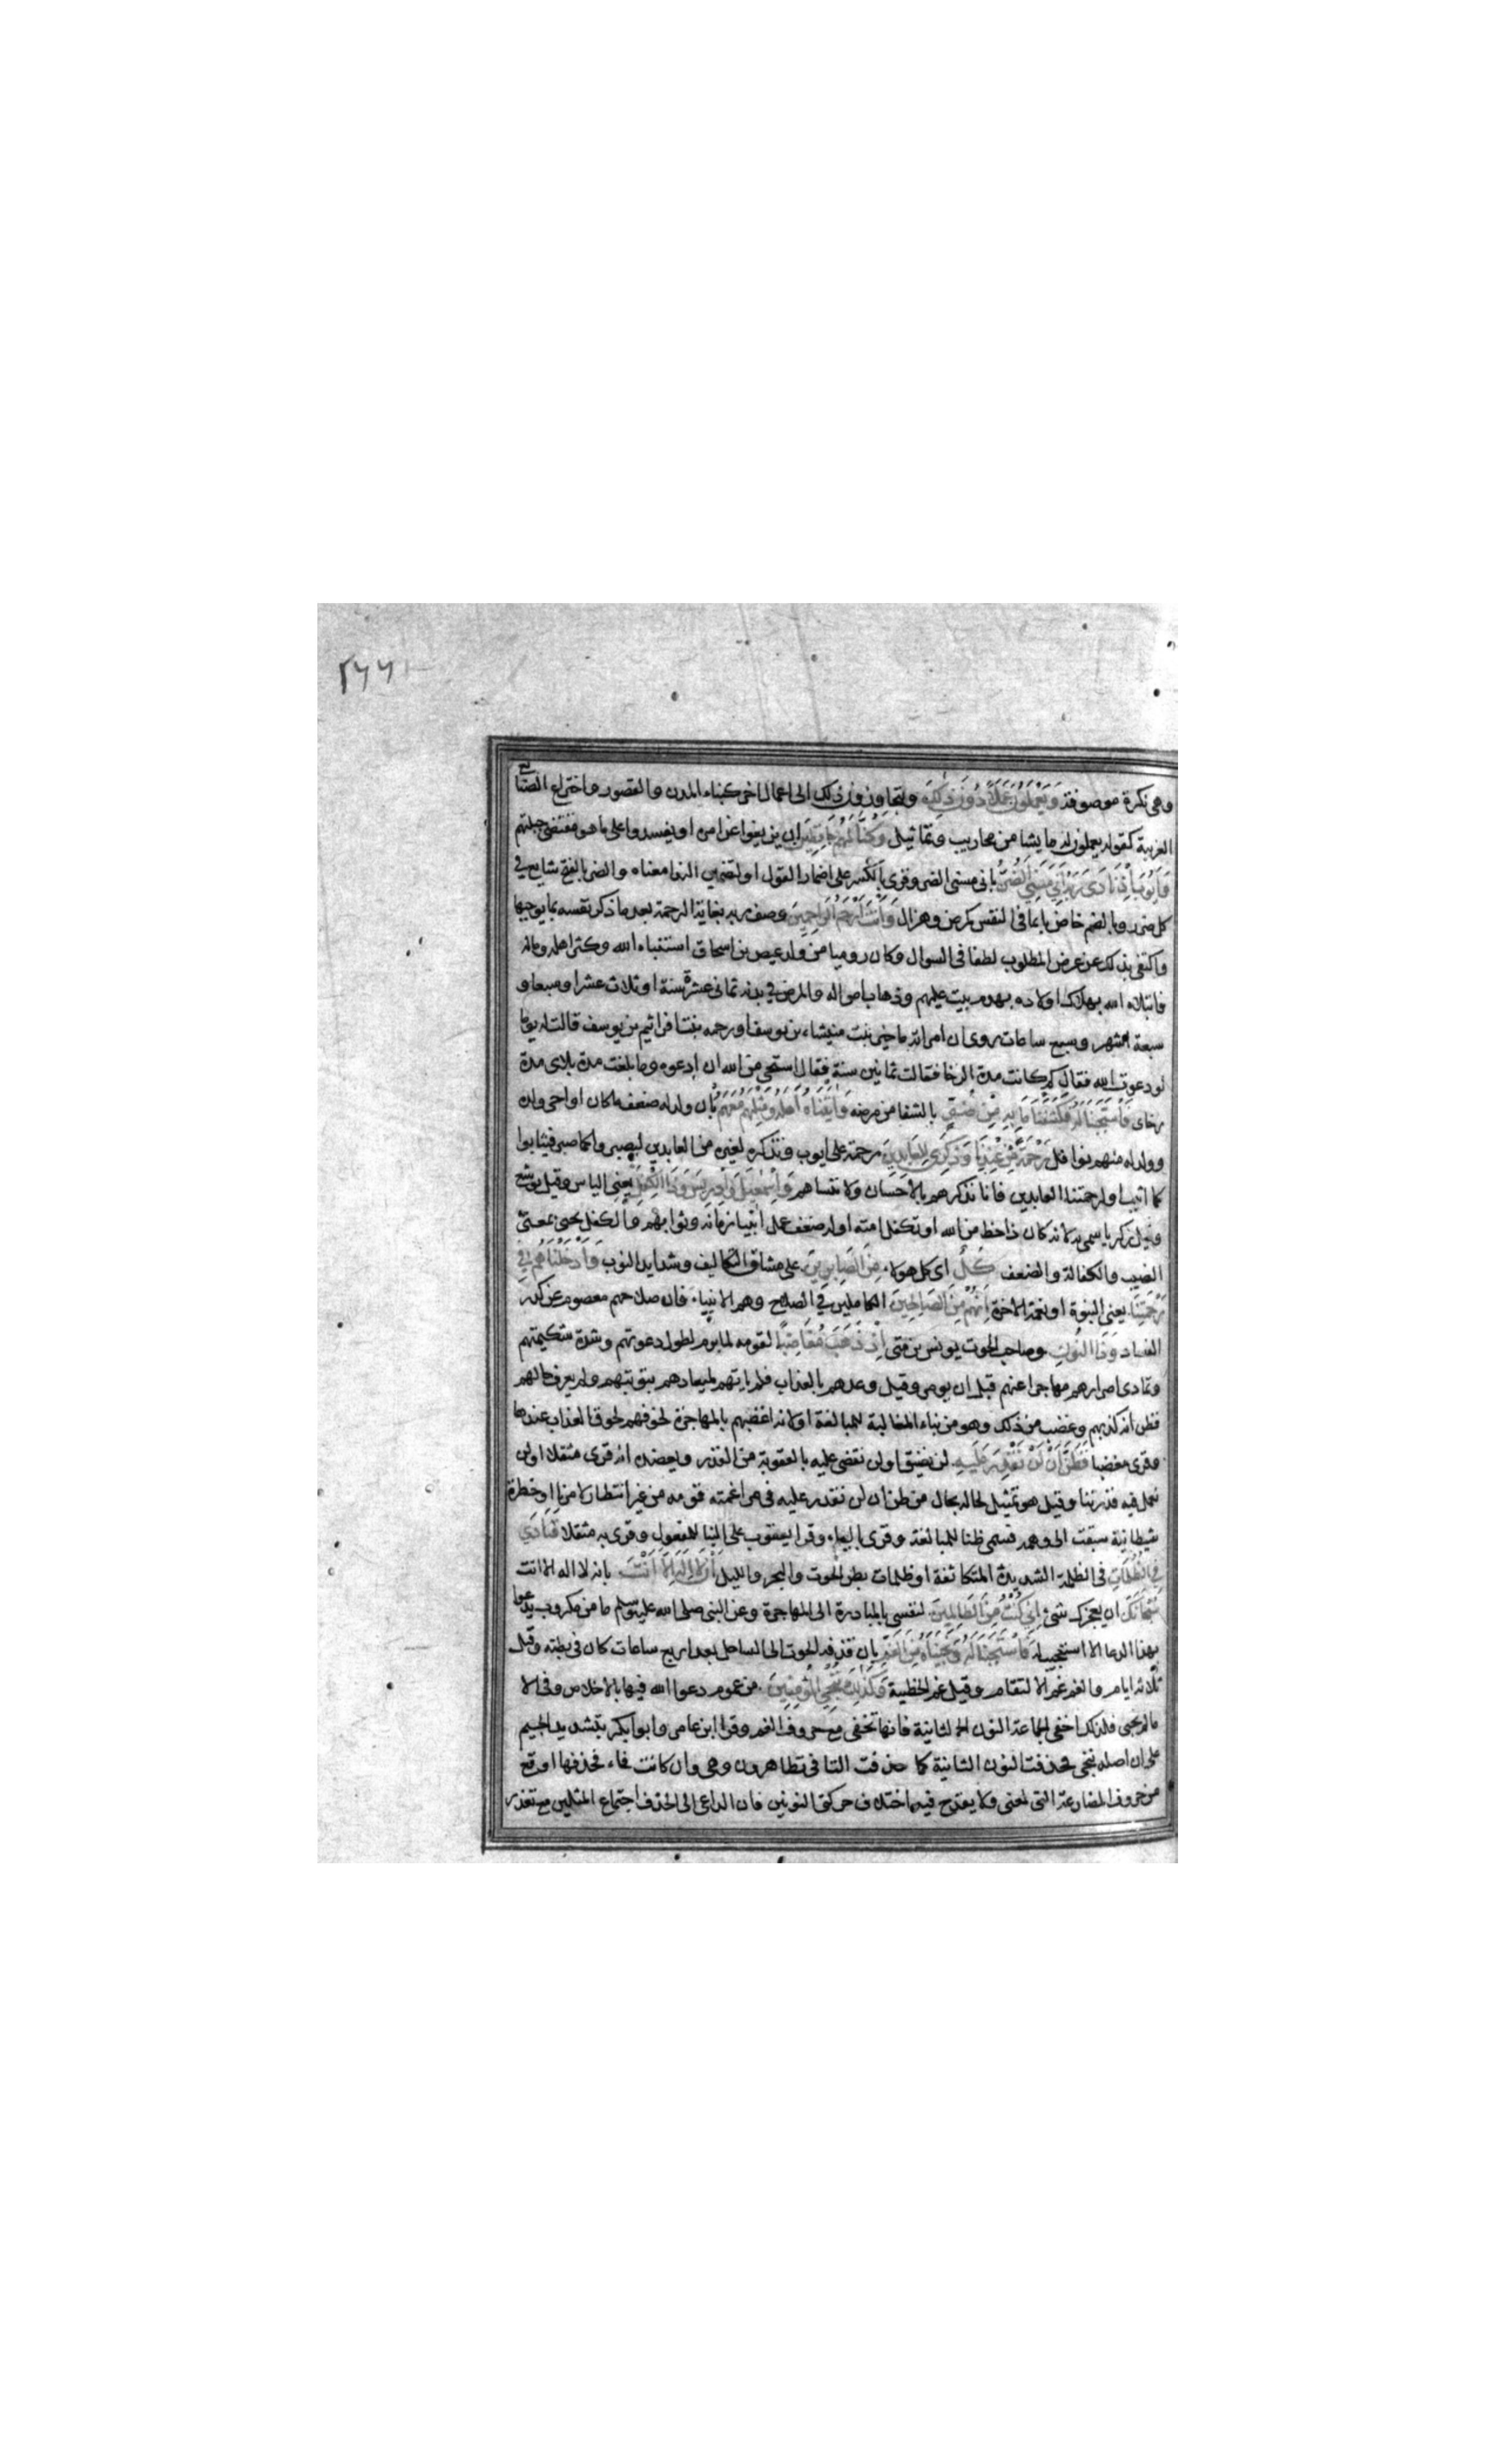 ٢٦٦
وهى نكرة موصوفة وَيَعْمَلُونَ عَمَلًا دُونَ ذَلِكَ ويتجاوزون ذلك الى اعمال اخر كبناء المدن والقصور واختراع الصنائع
الغريبة كقوله يعملون له ما يشا من محاريب وتماثيل وَكُنَّا لَهُمْ حَافِظِينَ ان يزيغوا عن امره او يفسدوا على ما هو مقتضى جبلتهم
وَاَيُّوبَ اِذْ نَادَى رَبَّهُ اَنِّي مَسَّنِيَ الضُّرُّ بانى مسنى الضر وقرى بالكسر على اضمار القول او تضمين الندا معناه والضر بالفتح شايع فى
كل ضرر وبالضم خاص بما فى النفس كمرض وهزال وَاَنْتَ اَرْحَمُ الرَّاحِمِينَ وصف ربه بغاية الرحمة بعد ما ذكر نفسه بما يوجبها
واكتفى بذلك عن عرض المطلوب لطفا فى السوال وكان روميا من ولد عيص بن اسحاق استنباه الله وكثر اهله وماله
فابتلاه الله بهلاك اولاده بهدم بيت عليهم وذهاب امواله والمرض فى بدنه ثمانى عشرة سنة او ثلاث عشرا وسبعا و
سبعة اشهر وسبع ساعات روى ان امراته ماخير بنت ميشاء بن يوسف او رحمه بنت افرائيم بن يوسف قالت له يوما
لو دعوت الله فقال كم كانت مدة الرخا فقالت ثمانين سنة فقال استحى من الله ان ادعوه وما بلغت مدة بلائى مدة
رخاى فَاسْتَجَبْنَا لَهُ فَكَشَفْنَا مَا بِهِ مِنْ ضُرٍّ بالشفا من مرضه وَاٰتَيْنَاهُ اَهْلَهُ وَمِثْلَهُمْ مَعَهُمْ بان ولد له ضعف ما كان او احى ولده
وولد له منهم نوافل رَحْمَةً مِنْ عِنْدِنَا وَذِكْرَى لِلْعَابِدِينَ رحمة على ايوب وتذكرة لغيره من العابدين ليصبروا كما صبر فيثابوا
كما اثيب او لرحمتنا العابدين فانا نذكرهم بالاحسان ولا ننساهم وَاِسْمَعِيلَ وَاِدْرِيسَ وَذَا الْكِفْلِ يعنى الياس وقيل يوشع
وقيل زكريا سمى به لانه كان ذا حظ من الله او تكفل امته او له ضعف عمل انبيا زمانه وثوابهم والكفل يجئ بمعنى
النصيب والكفالة والضعف كُلٌّ اى كل هولاء مِنَ الصَّابِرِينَ على مشاق التكاليف وشدايد النوب وَاَدْخَلْنَاهُمْ فِي
رَحْمَتِنَا يعنى النبوة او نعمة الاخرة اِنَّهُمْ مِنَ الصَّالِحِينَ الكاملين فى الصلاح وهم الانبياء فان صلاحهم معصوم عن كدر
الفساد وَذَا النُّونِ وصاحب الحوت يونس بن متى اِذْ ذَهَبَ مُغَاضِبًا لقومه لما برم لطول دعوتهم وشدة شكيمتهم
وتمادى اصرارهم مهاجرا عنهم قبل ان يومر وقيل وعدهم بالعذاب فلم ياتهم لميعادهم بتوبتهم ولم يعرف حالهم
فظن انه كذبهم وغضب من ذلك وهو من بناء المغالبة للمبالغة او لانه اغضبهم بالمهاجرة لخوفهم لحوق العذاب عندها
وقرى مغضبا فَظَنَّ اَنْ لَنْ نَقْدِرَ عَلَيْهِ لن نضيق او لن نقضى عليه بالعقوبة من القدر ويعضده انه قرى مثقلا او لن
نعمل فيه قدرتنا وقيل هو تمثيل لحاله بحال من ظن ان لن نقدر عليه فى مراغمته قومه من غير انتظار لامرنا او خطرة
شيطانية سبقت الى وهمه فسمى ظنا للمبالغة وقرى بالياء وقرا يعقوب على البنا للمفعول وقرى به مثقلا فَنَادَى
فِي الظُّلُمَاتِ فى الظلمة الشديدة المتكاثفة او ظلمات بطن الحوت والبحر والليل اَنْ لَا اِلَهَ اِلَّا اَنْتَ بانه لا اله الا انت
سُبْحَانَكَ ان يعجزك شئ اِنِّي كُنْتُ مِنَ الظَّالِمِينَ لنفسى بالمبادرة الى المهاجرة وعن النبى صلى الله عليه وسلم ما من مكروب يدعوا
بهذا الدعا الا استجيب له فَاسْتَجَبْنَا لَهُ وَنَجَّيْنَاهُ مِنَ الْغَمِّ بان قذفه الحوت الى الساحل بعد اربع ساعات كان فى بطنه وقيل
ثلاثه ايام والغم غم الالتقام وقيل غم الخطيئة وَكَذَلِكَ نُنْجِي الْمُؤْمِنِينَ من غموم دعوا الله فيها بالاخلاص وفى الا
مام نجى فلذلك اخفى الجماعة النون الثانية فانها تخفى مع حروف الفم وقرا ابن عامر وابو بكر بتشديد الجيم
على ان اصله ننجى فحذفت النون الثانية كما حذفت التا فى تظاهرون وهى وان كانت فاء فحذفها اوقع
من حروف المضارعة التى لمعنى ولا يقدح فيه اختلاف حركتى النونين فان الداعى الى الحذف اجتماع المثلين مع تعذر